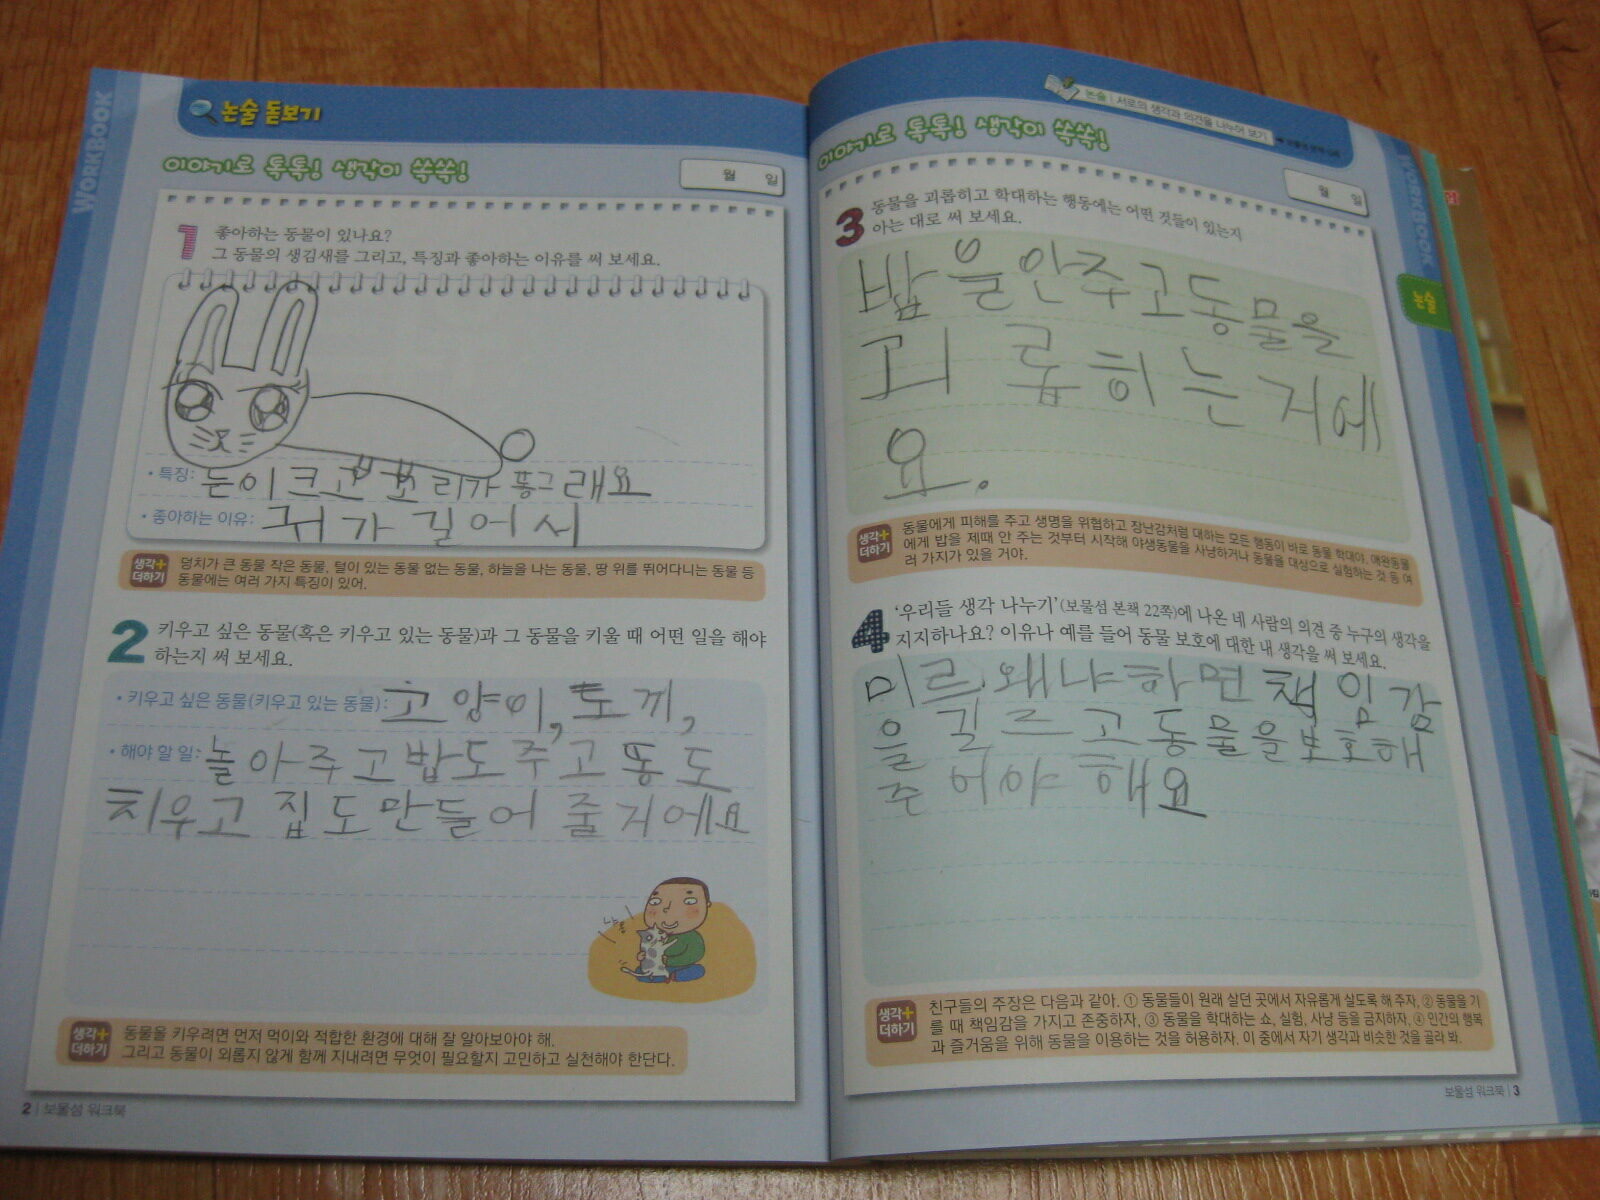 WORKBOOK
논술 돋보기
이야기로 톡톡! 생각이 쑥쑥!
월 일
1 좋아하는 동물이 있나요?
그 동물의 생김새를 그리고, 특징과 좋아하는 이유를 써 보세요.
• 특징: 눈이크고 꼬리가 똥그래요
• 좋아하는 이유: 귀가 길어서
생각+ 더하기
덩치가 큰 동물 작은 동물, 털이 있는 동물 없는 동물, 하늘을 나는 동물, 땅 위를 뛰어다니는 동물 등
동물에는 여러 가지 특징이 있어.
2 키우고 싶은 동물(혹은 키우고 있는 동물)과 그 동물을 키울 때 어떤 일을 해야
하는지 써 보세요.
• 키우고 싶은 동물(키우고 있는 동물): 고양이, 토끼,
• 해야 할 일: 놀아주고밥도주고똥도
치우고 집도만들어 줄거에요
나옹
생각+ 더하기
동물을 키우려면 먼저 먹이와 적합한 환경에 대해 잘 알아보아야 해.
그리고 동물이 외롭지 않게 함께 지내려면 무엇이 필요할지 고민하고 실천해야 한단다.
2 | 보물섬 워크북
논술 | 서로의 생각과 의견을 나누어 보기
이야기로 톡톡! 생각이 쑥쑥!
월 일
3 동물을 괴롭히고 학대하는 행동에는 어떤 것들이 있는지
아는 대로 써 보세요.
밥을안주고동물을
괴롭히는거에
요.
생각+ 더하기
동물에게 피해를 주고 생명을 위협하고 장난감처럼 대하는 모든 행동이 바로 동물 학대야. 애완동물
에게 밥을 제때 안 주는 것부터 시작해 야생동물을 사냥하거나 동물을 대상으로 실험하는 것 등 여
러 가지가 있을 거야.
4 '우리들 생각 나누기'(보물섬 본책 22쪽)에 나온 네 사람의 의견 중 누구의 생각을
지지하나요? 이유나 예를 들어 동물 보호에 대한 내 생각을 써 보세요.
미르, 왜냐하면 책임감
을 길르고동물을보호해
주어야해요
생각+ 더하기
친구들의 주장은 다음과 같아. ① 동물들이 원래 살던 곳에서 자유롭게 살도록 해 주자, ② 동물을 기
를 때 책임감을 가지고 존중하자, ③ 동물을 학대하는 쇼, 실험, 사냥 등을 금지하자, ④ 인간의 행복
과 즐거움을 위해 동물을 이용하는 것을 허용하자. 이 중에서 자기 생각과 비슷한 것을 골라 봐.
보물섬 워크북 | 3
WORKBOOK
논술